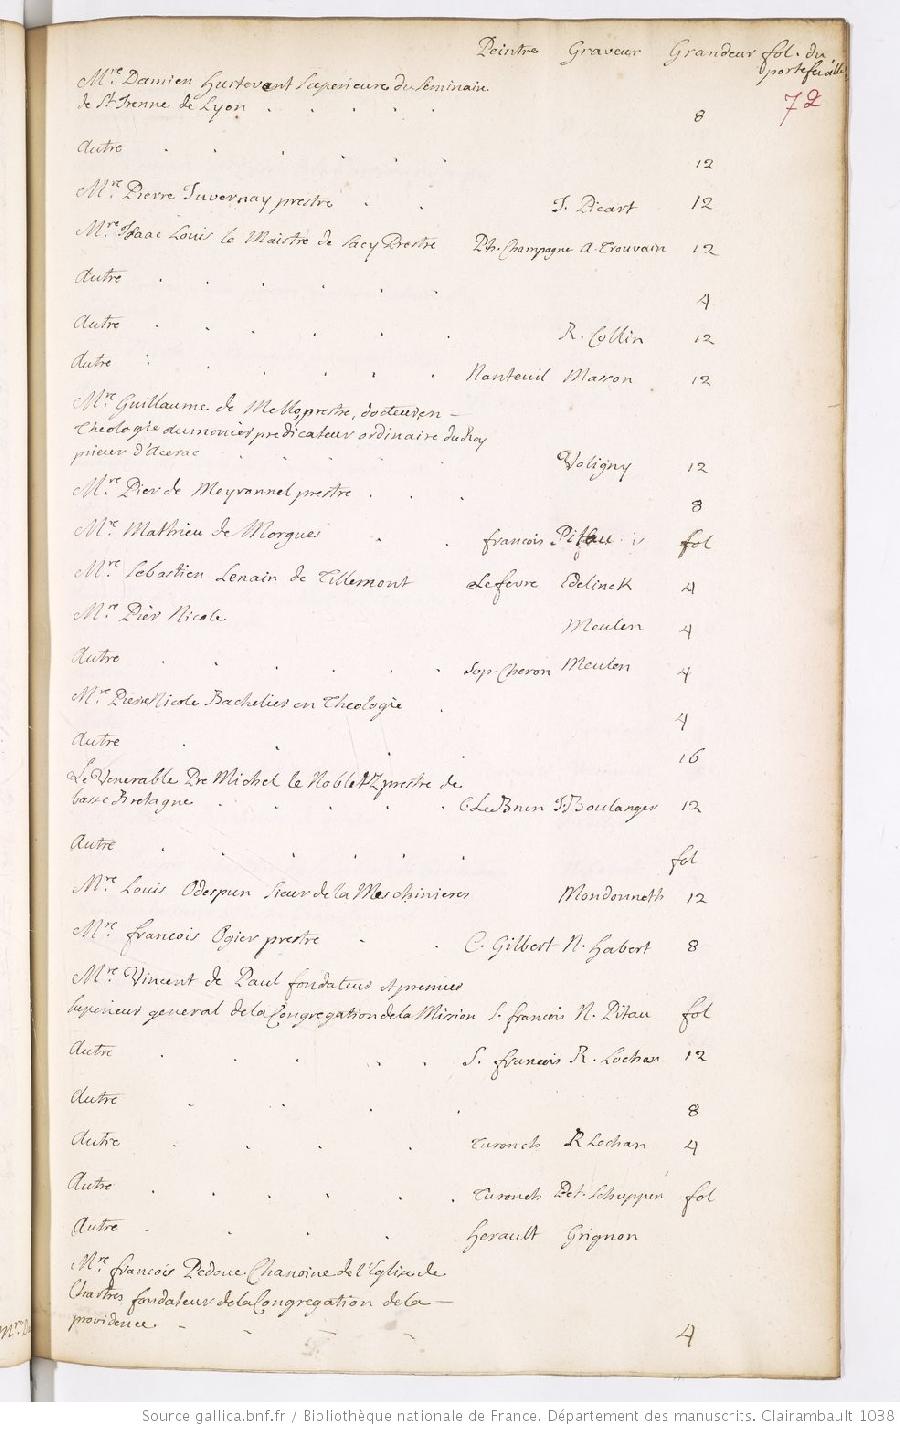 Peintre Graveur Grandeur fol. du
portefeuille
72
Mre. Damien Hurtevent Superieure du Seminaire
de St Irenne de Lyon . . . . 8
Autre . . . . . . 12
Mre. Pierre Juvernay prestre . . J. Picart 12
Mre. Isaac Louis le Maistre de Sacy Prestre Ph. Champagne A. Trouvain 12
Autre . . . . . . 4
Autre . . . . . . R. Collin 12
Autre . . . . . . Nanteuil Masson 12
Mre. Guillaume de Mello prestre, docteur en –
Theologie aumonier predicateur ordinaire du Roy
prieur d'Acerac . . . . . Voligny 12
Mre. Pier de Meyronnel prestre . . . 8
Mre. Mathieu de Morgues . . francois Pitau fol
Mre. Sebastien Lenain de Tillemont Lefevre Edelinck 4
Mre. Pier Nicole Meulen 4
Autre . . . . . Sop. Cheron Meulen 4
Mre. Pierre Nicole Bachelier en Theologie . 4
Autre . . . . 16
Le Venerable Pre Michel le Nobletz prestre de
basse Bretagne . . . . . C. LeBrun J. Boulanger 12
Autre . . . . . . fol
Mre. Louis Odespun Sieur de la Meschinieres Mondonneth 12
Mre. francois Ogier prestre . . C. Gilbert N. Habert 8
Mre. Vincent de Paul fondateur et premier
Superieur general de la Congregation de la Mission S. francois N. Pitau fol
Autre . . . . S. francois R. Lochan 12
Autre . . . . 8
Autre . . . . Turonch R Lochan 4
Autre . . . . . Turonch Pet. Schuppen fol
Autre . . . . Herault Grignon
Mre. francois Pedoue Chanoine de l'Eglise de
Chartres fondateur de la Congregation de la –
providence . – – – 4
Source gallica.bnf.fr / Bibliothèque nationale de France. Département des manuscrits. Clairambault 1038